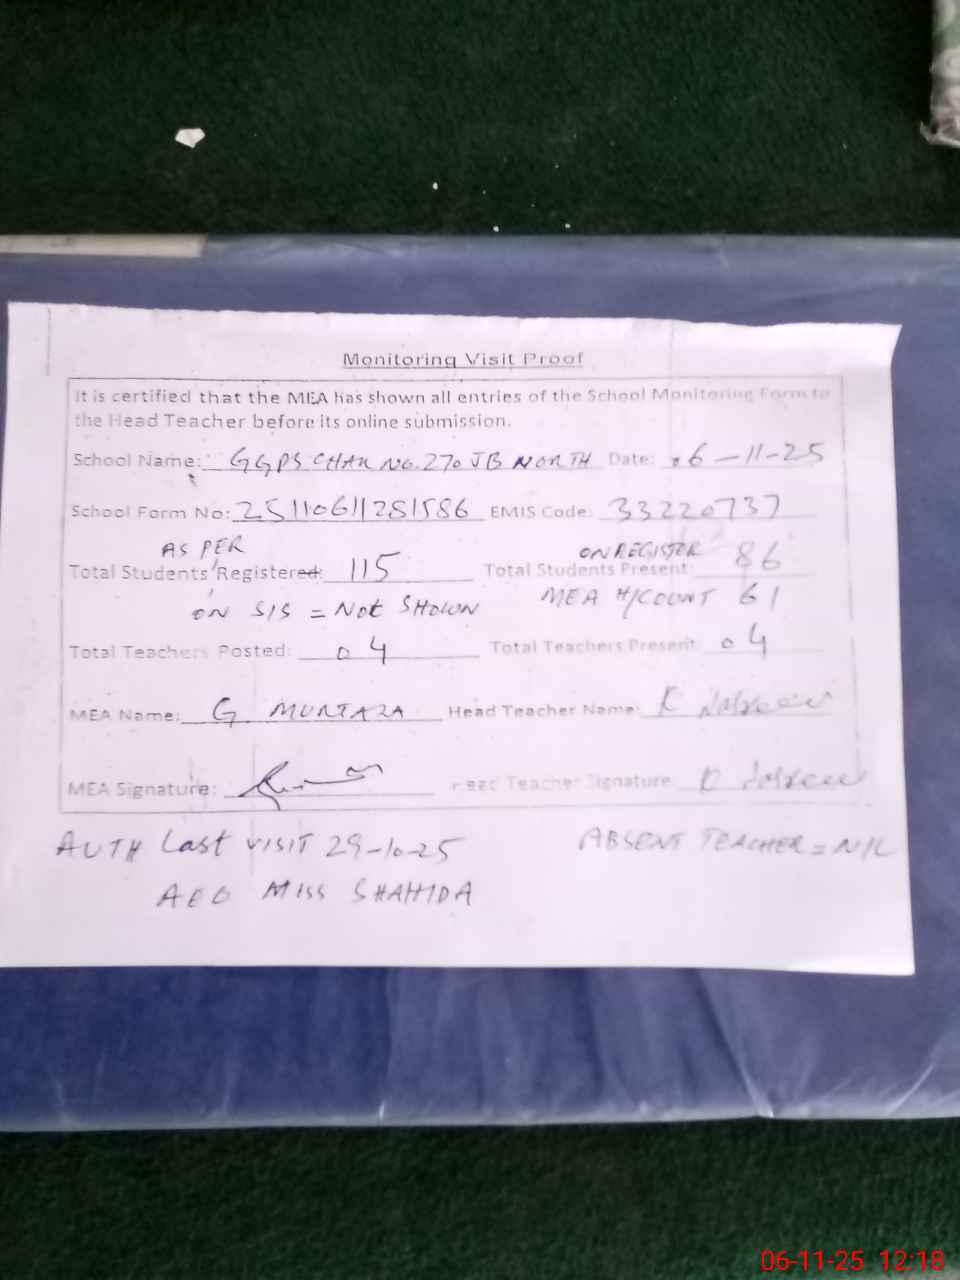 Monitoring Visit Proof
It is certified that the MEA has shown all entries of the School Monitoring Form to
the Head Teacher before its online submission.
School Name: GGPS CHAK NO. 270 JB NORTH Date: 06-11-25
School Form No: 2511061128 1586 EMIS Code: 33220737
AS PER ON REGISTER
Total Students Registered: 115 Total Students Present: 86
ON SIS = Not SHOWN MEA H/COUNT 61
Total Teachers Posted: 04 Total Teachers Present: 04
MEA Name: G MURTAZA Head Teacher Name: K
MEA Signature: Head Teacher Signature:
AUTH Last VISIT 29-10-25 ABSENT TEACHER = NIL
AEO MISS SHAHIDA
06-11-25 12:18